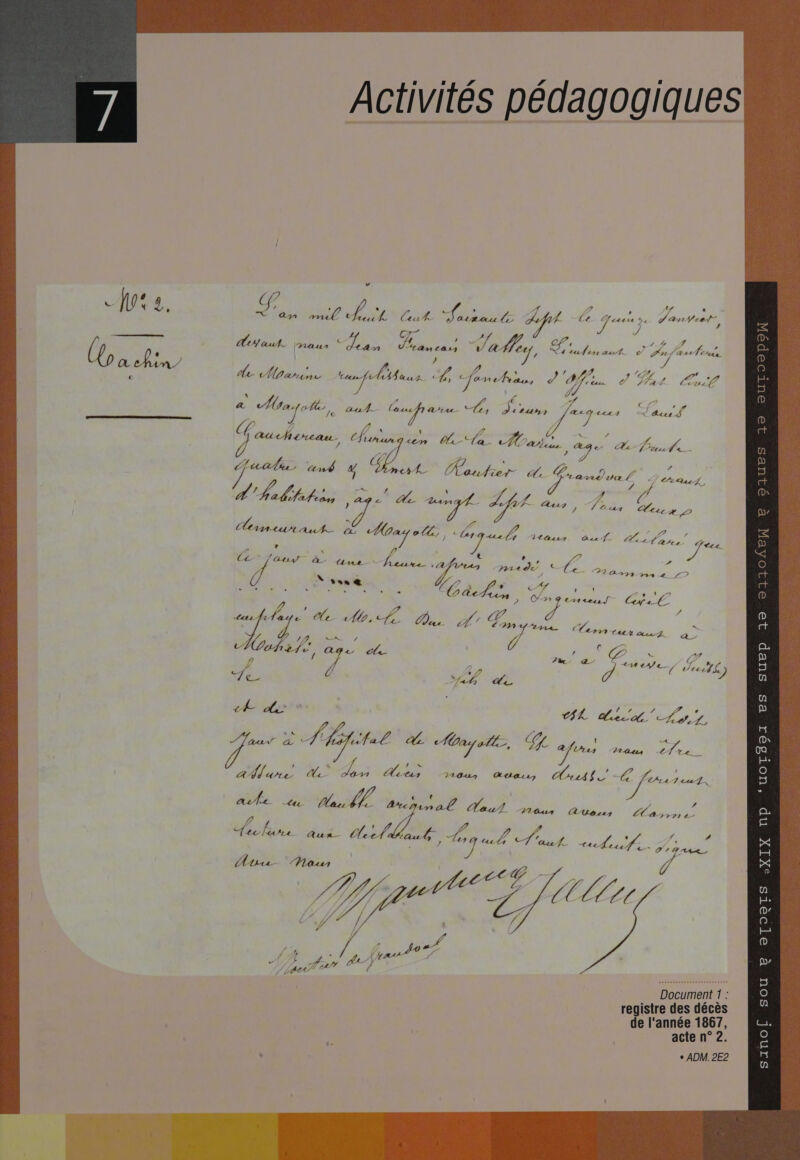 7
Activités pédagogiques
Nº 2.
Cachin
L'an mil huit Cent Soixante Sept le quinze Janvier,
devant nous Jean François Lieutenant d'Infanterie
de Marine remplissant les fonctions d'Officier d'Etat Civil
à Mayotte, ont Comparu les Sieurs Jacques Louis
Gauchereau, Chirurgien de la Marine, âgé de trente
quatre ans & Ernest Routier de Grandval, gérant
d'habitation, âgé de vingt Sept ans, tous deux
demeurant à Mayotte, lesquels nous ont déclaré que
ce jour à une heure après midi, le nommé
Cachin, Ingénieur Civil,
employé de M. le Duc d'Emyrne demeurant à
Mohéli, âgé de né à Genève (Suisse)
le fils de
et de est décédé
Jour à l'hôpital de Mayotte. Et après nous être
assuré de Son décès nous avons dressé le présent
acte en double original dont nous avons donné
lecture aux déclarants, lesquels l'ont ensuite Signé
Avec Nous
Gauchereau
Routier de Grandval
Document 1 :
registre des décès
de l'année 1867,
acte n° 2.
• ADM. 2E2
Médecine et santé à Mayotte et dans sa région, du XIXe siècle à nos jours